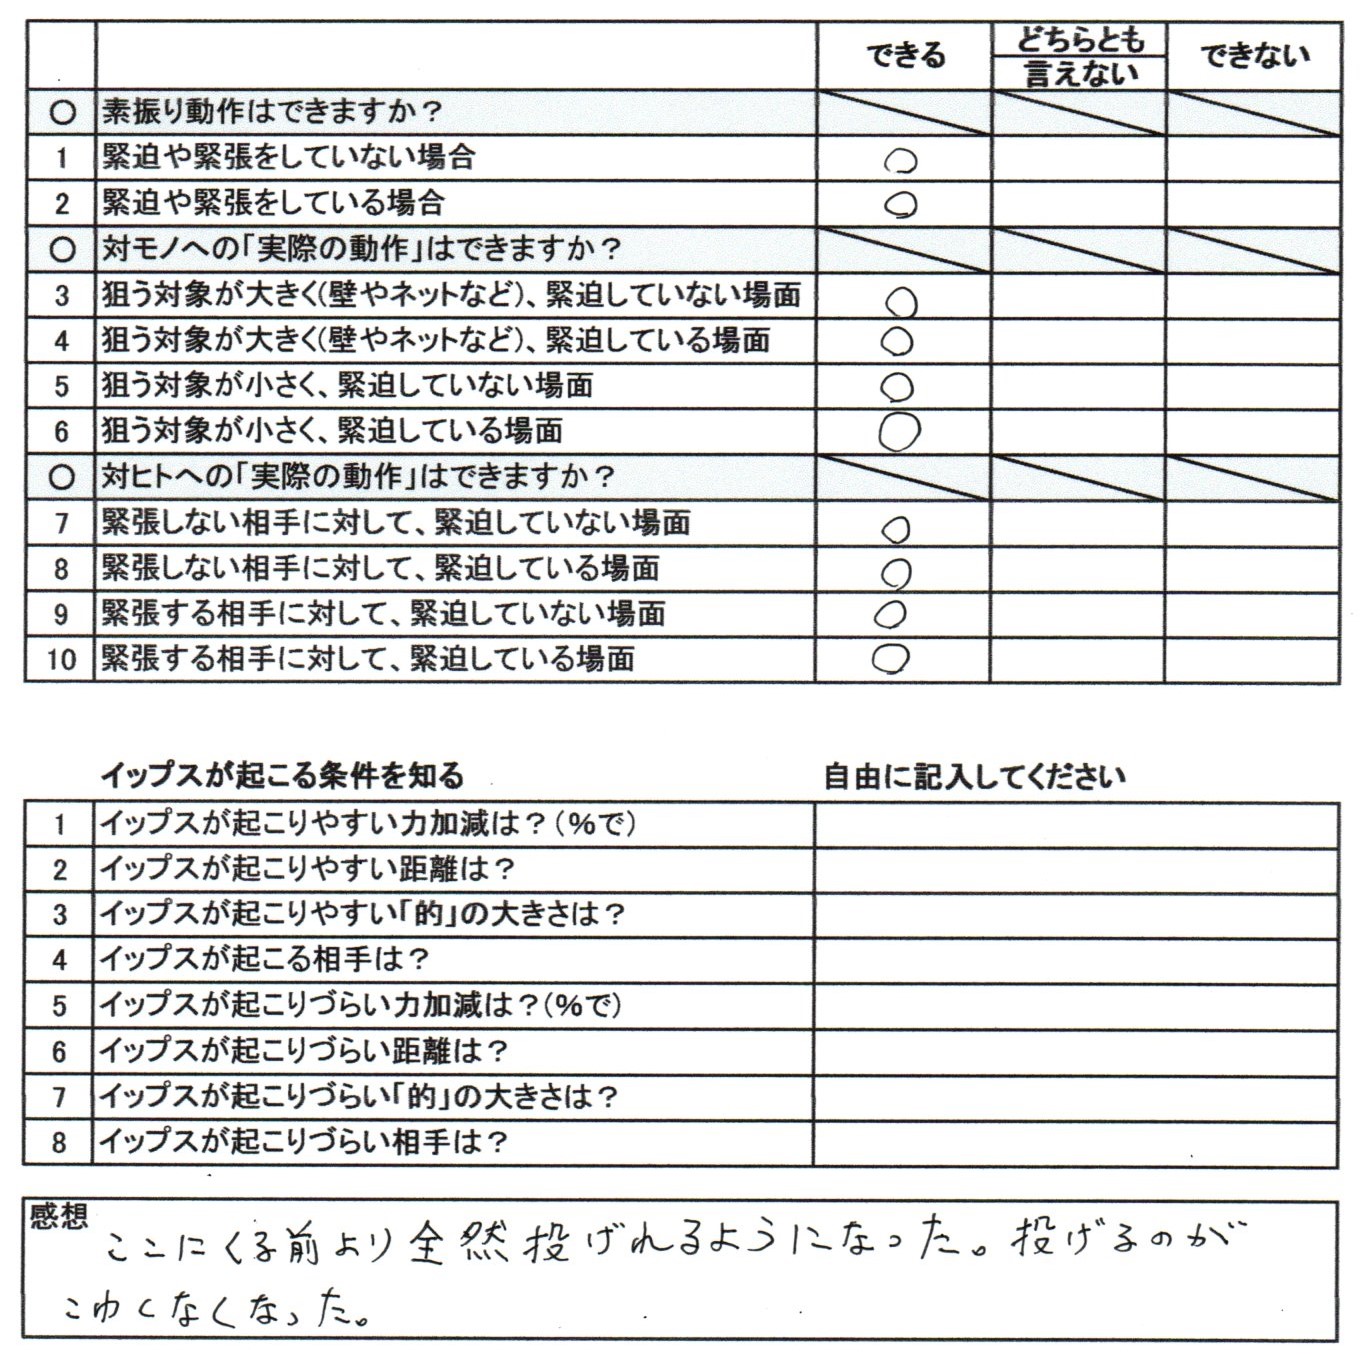 できる どちらとも できない
言えない
〇 素振り動作はできますか？
1 緊迫や緊張をしていない場合 〇
2 緊迫や緊張をしている場合 〇
〇 対モノへの「実際の動作」はできますか？
3 狙う対象が大きく(壁やネットなど)、緊迫していない場面 〇
4 狙う対象が大きく(壁やネットなど)、緊迫している場面 〇
5 狙う対象が小さく、緊迫していない場面 〇
6 狙う対象が小さく、緊迫している場面 〇
〇 対ヒトへの「実際の動作」はできますか？
7 緊張しない相手に対して、緊迫していない場面 〇
8 緊張しない相手に対して、緊迫している場面 〇
9 緊張する相手に対して、緊迫していない場面 〇
10 緊張する相手に対して、緊迫している場面 〇
イップスが起こる条件を知る 自由に記入してください
1 イップスが起こりやすい力加減は？(％で)
2 イップスが起こりやすい距離は？
3 イップスが起こりやすい「的」の大きさは？
4 イップスが起こる相手は？
5 イップスが起こりづらい力加減は？(％で)
6 イップスが起こりづらい距離は？
7 イップスが起こりづらい「的」の大きさは？
8 イップスが起こりづらい相手は？
感想
ここにくる前より全然投げれるようになった。投げるのが
こわくなくなった。